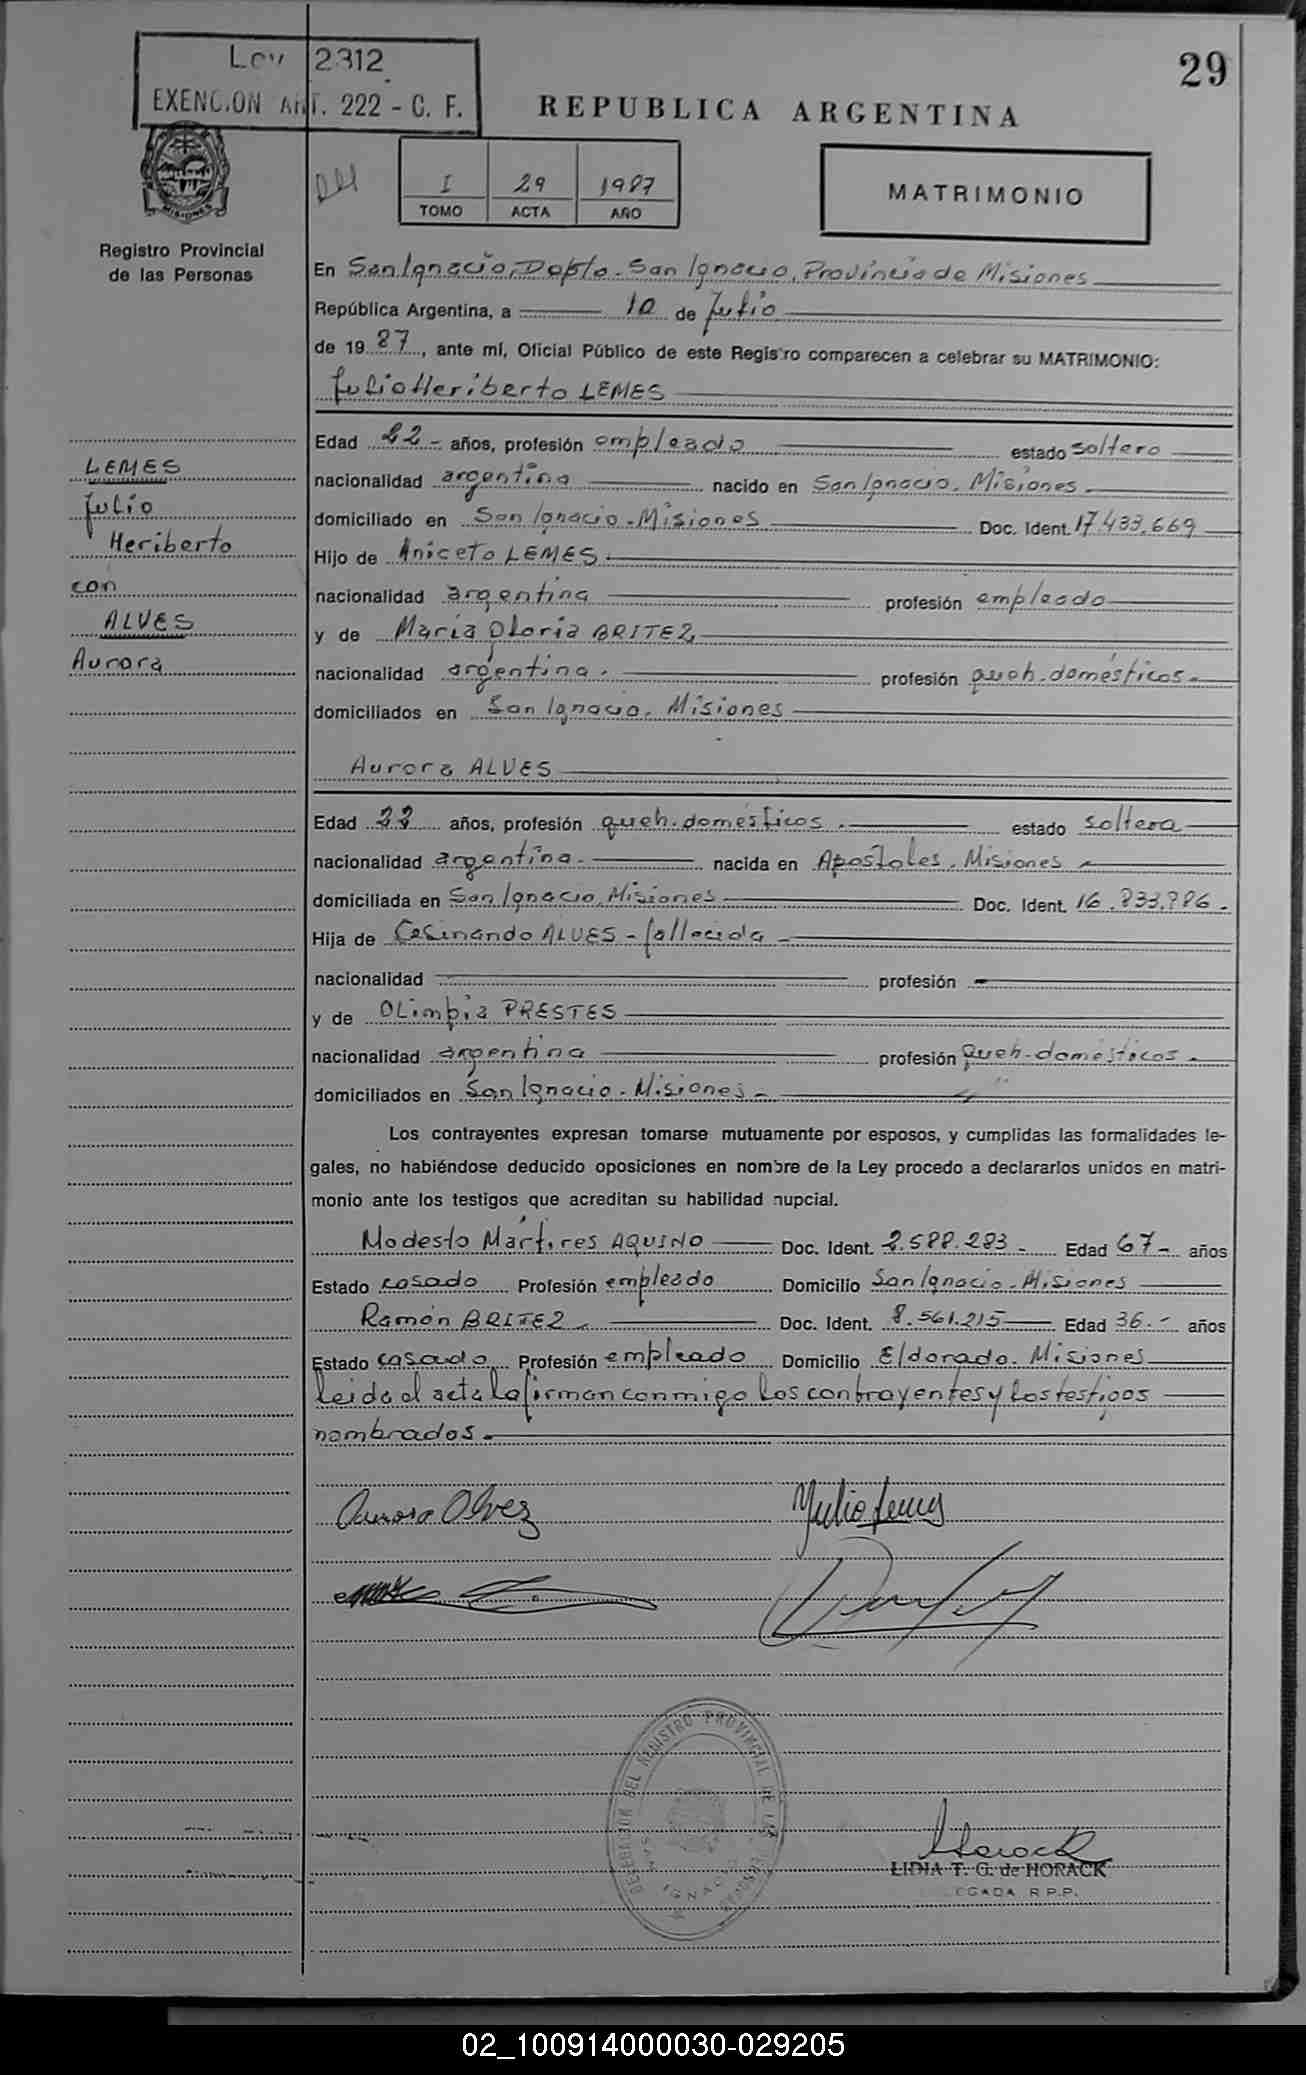 29
Ley 2312
EXENCION ART. 222 - C. F.
REPUBLICA ARGENTINA
MISIONES
I 29 1987
TOMO ACTA AÑO
MATRIMONIO
Registro Provincial
de las Personas
En San Ignacio, Dopto. San Ignacio, Provincia de Misiones
República Argentina, a 10 de Julio
de 1987, ante mí, Oficial Público de este Registro comparecen a celebrar su MATRIMONIO:
Julio Heriberto LEMES
Edad 22- años, profesión empleado estado soltero
LEMES
nacionalidad argentina nacido en San Ignacio. Misiones
Julio
domiciliado en San Ignacio - Misiones Doc. Ident. 17.433.669
Heriberto
Hijo de Aniceto LEMES
con
nacionalidad argentina profesión empleado
ALVES
y de María Gloria BRITEZ
Aurora
nacionalidad argentina. profesión queh. domésticos.
domiciliados en San Ignacio. Misiones
Aurora ALVES
Edad 23 años, profesión queh. domésticos. estado soltera
nacionalidad argentina. nacida en Apostoles. Misiones
domiciliada en San Ignacio, Misiones Doc. Ident. 16.833.886.
Hija de Cesinando ALVES - fallecida
nacionalidad profesión -
y de Olimpia PRESTES
nacionalidad argentina profesión queh. domésticos.
domiciliados en San Ignacio. Misiones
Los contrayentes expresan tomarse mutuamente por esposos, y cumplidas las formalidades le-
gales, no habiéndose deducido oposiciones en nombre de la Ley procedo a declararlos unidos en matri-
monio ante los testigos que acreditan su habilidad nupcial.
Modesto Mártires AQUINO Doc. Ident. 2.588.283 - Edad 67- años
Estado casado Profesión empleado Domicilio San Ignacio - Misiones
Ramón BRITEZ Doc. Ident. 8.561.215 Edad 36.- años
Estado casado Profesión empleado Domicilio Eldorado. Misiones
leida el acta la firman conmigo los contrayentes y los testigos
nombrados.
Aurora Alvez Yulio Lemes
DELEGACION DEL REGISTRO PROVINCIAL DE LAS PERSONAS
SAN IGNACIO
Horack
LIDIA T. G. de HORACK
DELEGADA R.P.P.
02_100914000030-029205